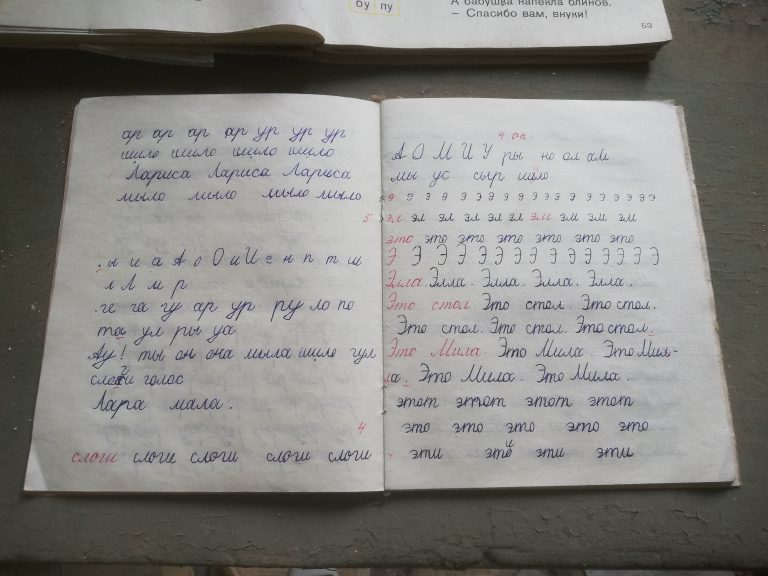 бу пу
А бабушка напекла блинов.
– Спасибо вам, внуки!
53
ар ар ар ар ур ур ур
шило шило шило шило
Лариса Лариса Лариса
мыло мыло мыло мыло
5
л и а А о О и И г н п т ш
л Л м р
ге га гу ар ур ру ло по
та ул ры уа
Ау! ты он она мыла шило гул
слоги голос
Лара мала.
4
слоги слоги слоги слоги слоги
4 ап.
А О М И У ры но ол ам
мы ус сыр шило
э э э э э э э э э э э э э э э э э э э
эл эл эл эл эл эл эм эм эм эм
это это это это это это это
Э Э Э Э Э Э Э Э Э Э Э Э Э Э Э
Элла. Элла. Элла. Элла. Элла.
Это стол. Это стол. Это стол.
Это стол. Это стол. Это стол.
Это Мила. Это Мила. Это Ми-
ла. Это Мила. Это Мила.
этот этот этот этот
это это это это это
эти эти эти эти